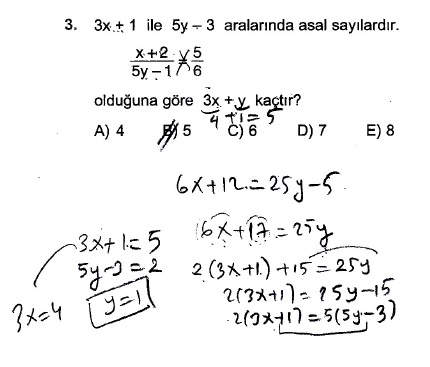 3. 3x + 1 ile 5y − 3 aralarında asal sayılardır.
x+2 / 5y−1 = 5 / 6
olduğuna göre 3x + y kaçtır?
4 + 1 = 5
A) 4 B) 5 C) 6 D) 7 E) 8
6x+12 = 25y−5
6x+17 = 25y
2(3x+1)+15 = 25y
2(3x+1) = 25y−15
2(3x+1) = 5(5y−3)
3x+1 = 5
5y−3 = 2
y=1
3x=4